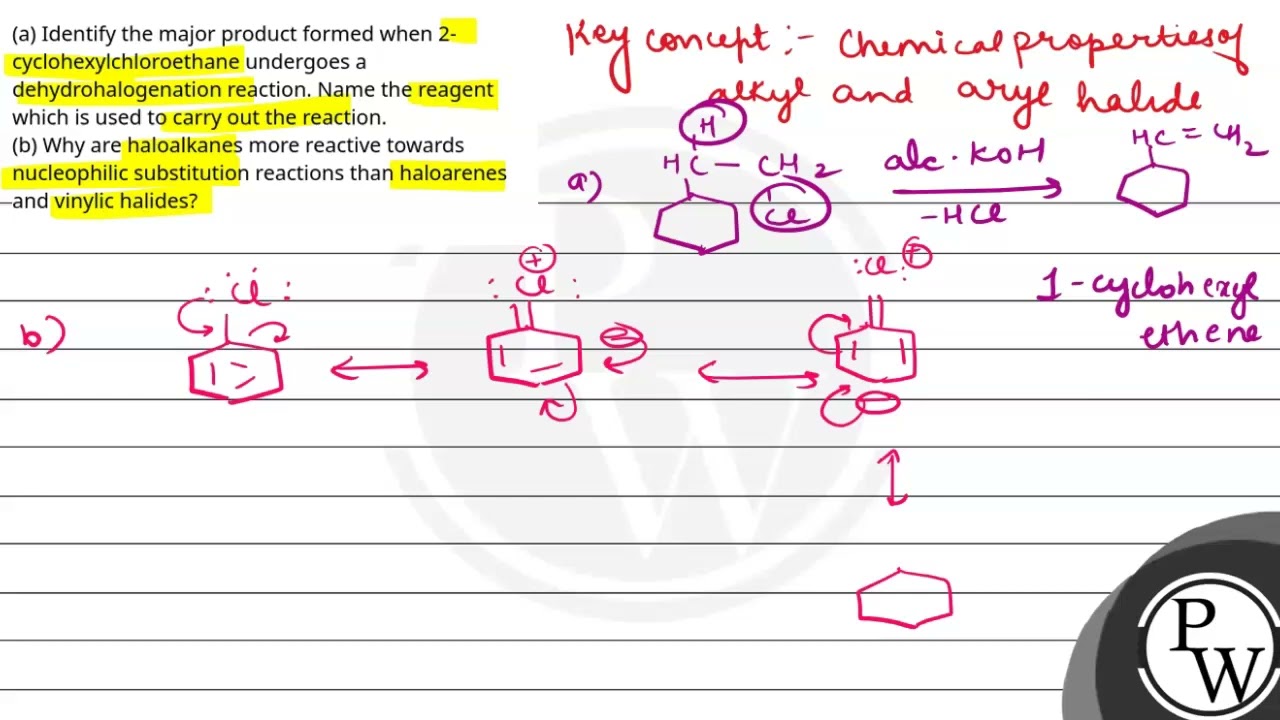 (a) Identify the major product formed when 2-
cyclohexylchloroethane undergoes a
dehydrohalogenation reaction. Name the reagent
which is used to carry out the reaction.
(b) Why are haloalkanes more reactive towards
nucleophilic substitution reactions than haloarenes
and vinylic halides?
Key concept :- Chemical properties of
alkyl and aryl halide
a)
H
HC – CH2
Cl
alc. KOH
-HCl
HC = CH2
1-cyclohexyl
ethene
b)
:Cl:
+
:Cl:
:Cl: +
P
W
P
W